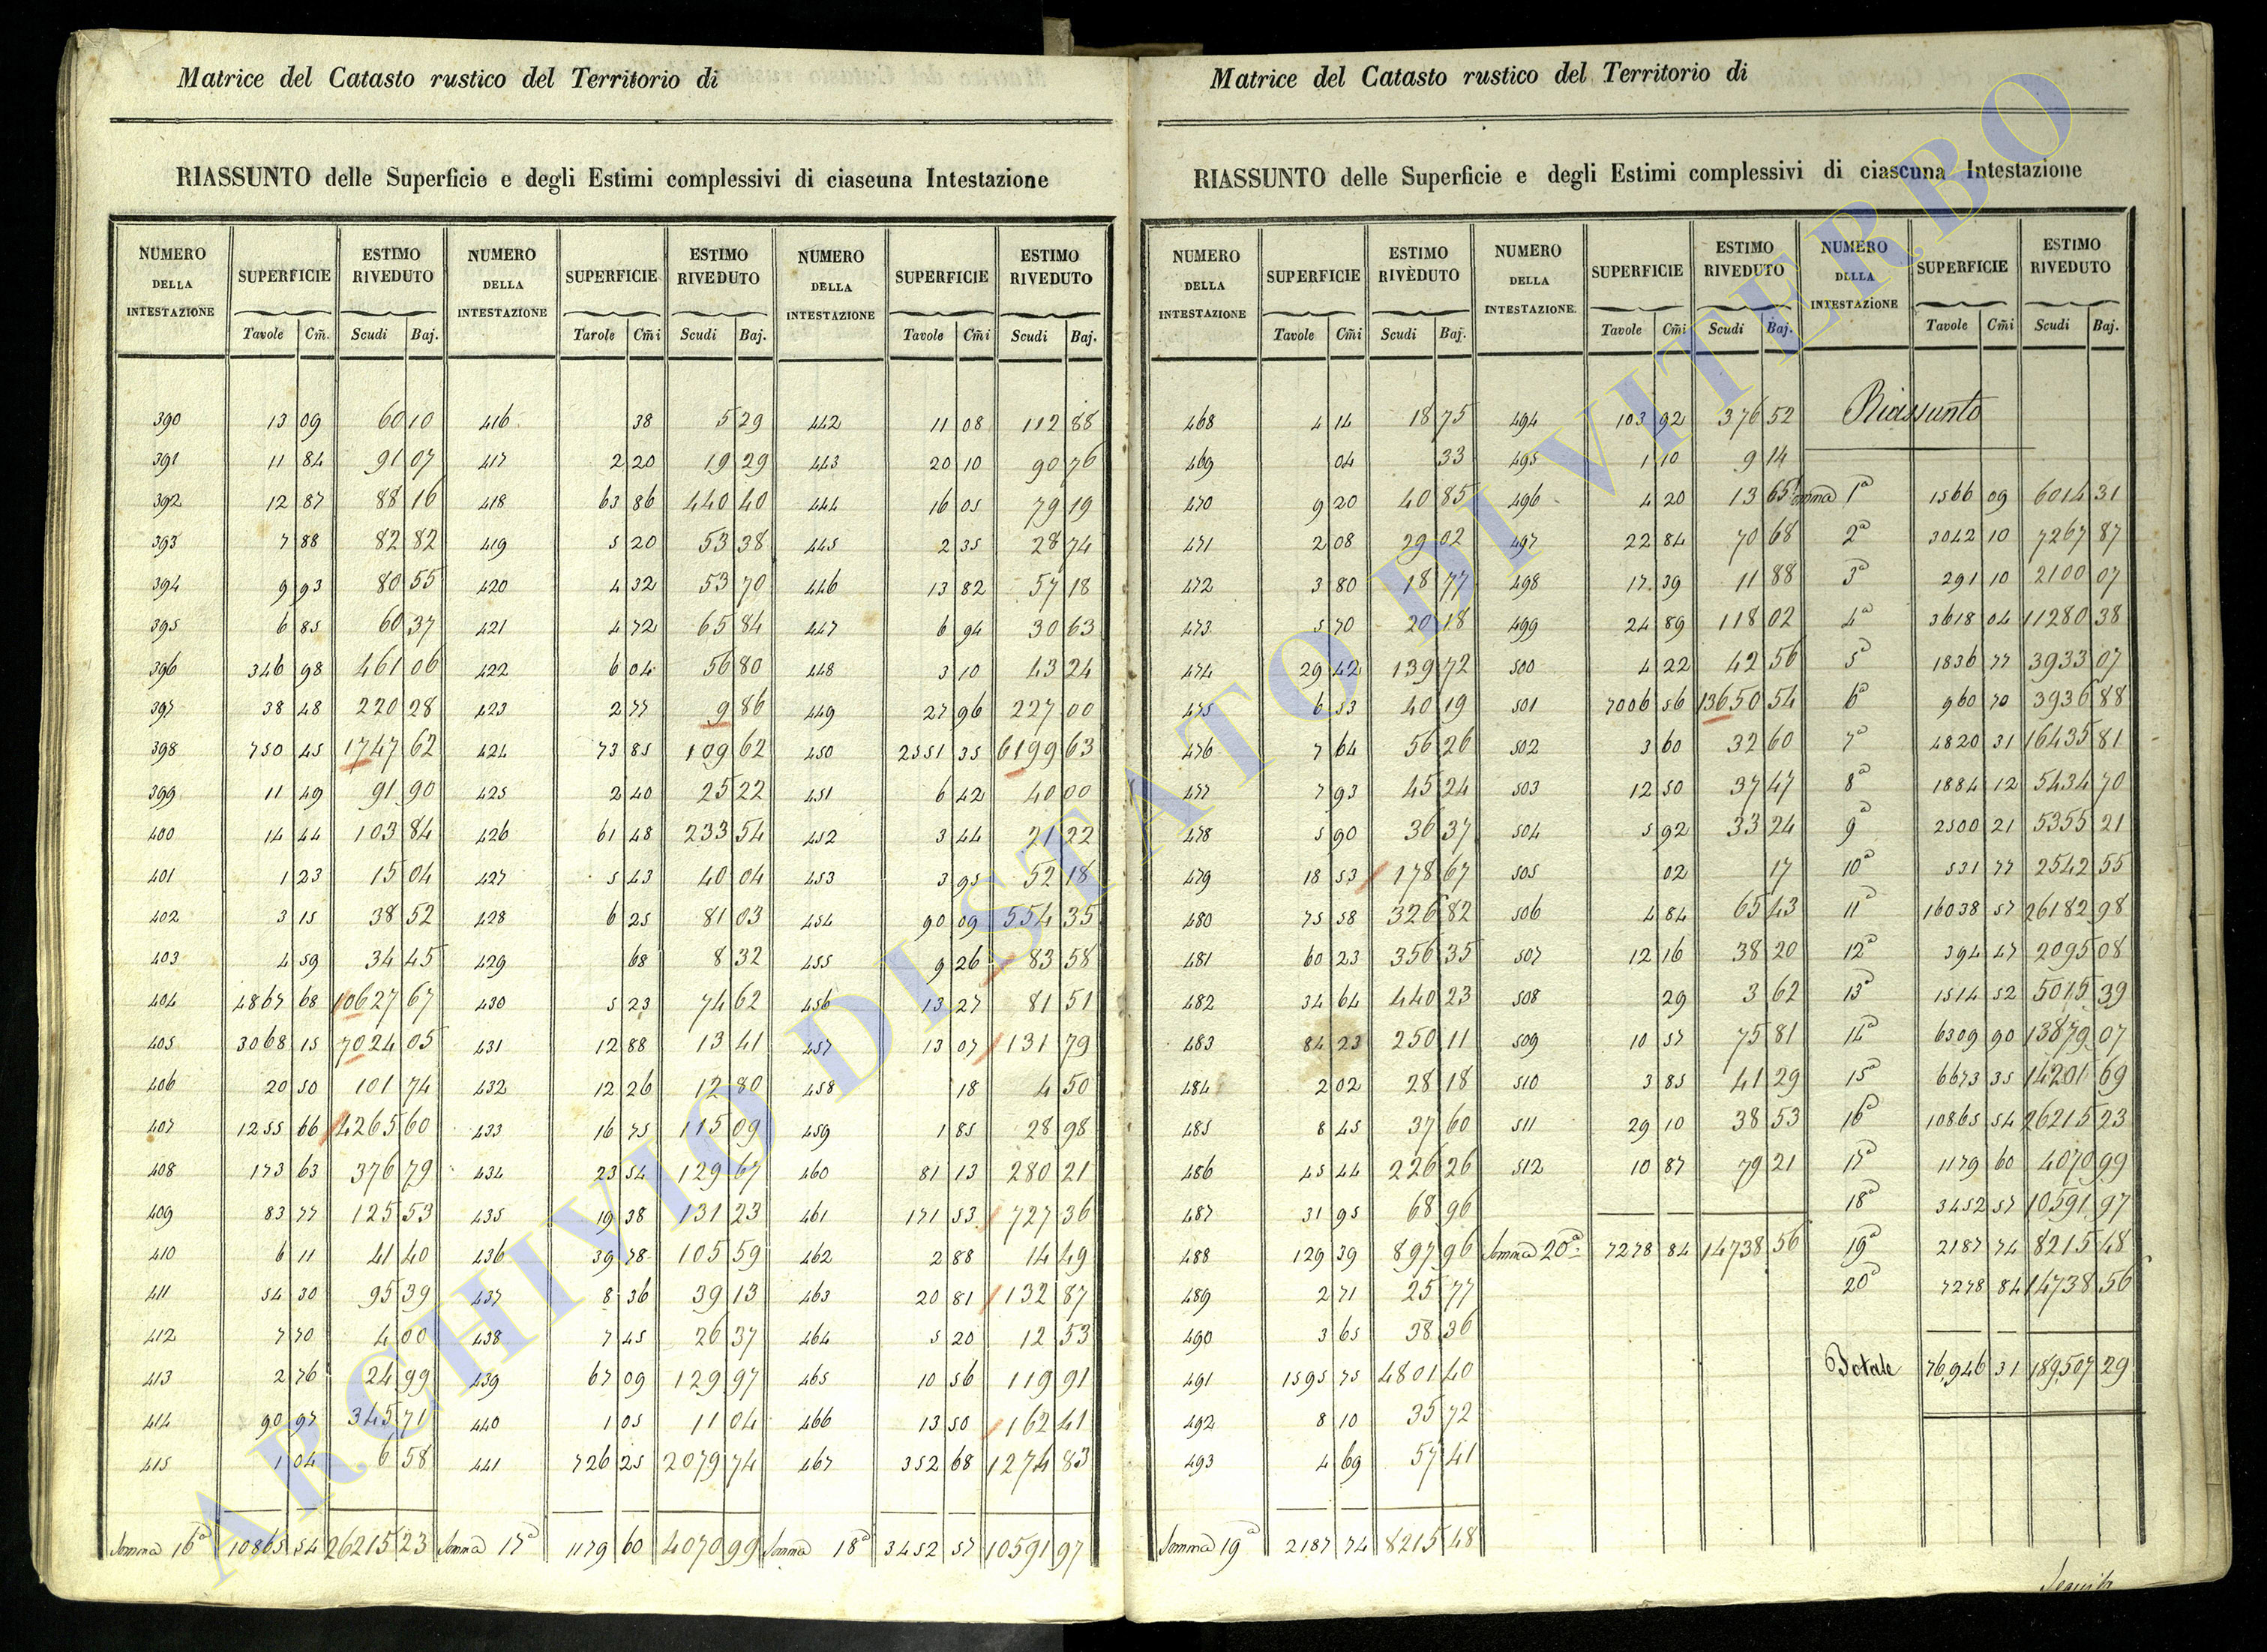 Matrice del Catasto rustico del Territorio di
RIASSUNTO delle Superficie e degli Estimi complessivi di ciaseuna Intestazione
NUMERO DELLA INTESTAZIONE SUPERFICIE ESTIMO RIVEDUTO NUMERO DELLA INTESTAZIONE SUPERFICIE ESTIMO RIVEDUTO NUMERO DELLA INTESTAZIONE SUPERFICIE ESTIMO RIVEDUTO
Tavole Cm̃. Scudi Baj. Tarole Cm̃i Scudi Baj. Tavole Cm̃i Scudi Baj.
390 13 09 60 10 416 38 5 29 442 11 08 112 88
391 11 84 91 07 417 2 20 19 29 443 20 10 90 76
392 12 87 88 16 418 63 86 440 40 444 16 05 79 19
393 7 88 82 82 419 5 20 53 38 445 2 35 28 74
394 9 93 80 55 420 4 32 53 70 446 13 82 57 18
395 6 85 60 37 421 4 72 65 84 447 6 94 30 63
396 346 98 461 06 422 6 04 56 80 448 3 10 43 24
397 38 48 220 28 423 2 77 9 86 449 27 96 227 00
398 750 45 1747 62 424 73 85 109 62 450 2551 35 6199 63
399 11 49 91 90 425 2 40 25 22 451 6 42 40 00
400 14 44 103 84 426 61 48 233 54 452 3 44 21 22
401 1 23 15 04 427 5 43 40 04 453 3 95 52 18
402 3 15 38 52 428 6 25 81 03 454 90 09 554 35
403 4 59 34 45 429 68 8 32 455 9 26 83 58
404 4867 68 10627 67 430 5 23 74 62 456 13 27 81 51
405 3068 15 7024 05 431 12 88 13 41 457 13 07 131 79
406 20 50 101 74 432 12 26 12 80 458 18 4 50
407 1255 66 4265 60 433 16 75 115 09 459 1 85 28 98
408 173 63 376 79 434 23 54 129 67 460 81 13 280 21
409 83 77 125 53 435 19 38 131 23 461 171 53 727 36
410 6 11 41 40 436 39 78 105 59 462 2 88 14 49
411 54 30 95 39 437 8 36 39 13 463 20 81 132 87
412 7 70 4 00 438 7 45 26 37 464 5 20 12 53
413 2 76 24 99 439 67 09 129 97 465 10 56 119 91
414 90 97 345 71 440 1 05 11 04 466 13 50 162 41
415 1 04 6 58 441 726 25 2079 74 467 352 68 1274 83
Somma 16ª 10865 54 26215 23 Somma 17ª 1179 60 4070 99 Somma 18ª 3452 57 10591 97
Matrice del Catasto rustico del Territorio di
RIASSUNTO delle Superficie e degli Estimi complessivi di ciascuna Intestazione
NUMERO DELLA INTESTAZIONE SUPERFICIE ESTIMO RIVEDUTO NUMERO DELLA INTESTAZIONE. SUPERFICIE ESTIMO RIVEDUTO NUMERO DELLA INTESTAZIONE SUPERFICIE ESTIMO RIVEDUTO
Tavole Cm̃i Scudi Baj. Tavole Cm̃i Scudi Baj. Tavole Cm̃i Scudi Baj.
468 4 14 18 75 494 103 92 376 52 Riassunto
469 04 33 495 1 10 9 14
470 9 20 40 85 496 4 20 13 65 Somma 1ª 1566 09 6014 31
471 2 08 29 02 497 22 84 70 68 2ª 3042 10 7267 87
472 3 80 18 77 498 17 39 11 88 3ª 291 10 2100 07
473 5 70 20 18 499 24 89 118 02 4ª 3618 04 11280 38
474 29 42 139 72 500 4 22 42 56 5ª 1836 77 3933 07
475 6 53 40 19 501 7006 56 13650 54 6ª 960 70 3936 88
476 7 64 56 26 502 3 60 32 60 7ª 4820 31 16435 81
477 7 93 45 24 503 12 50 37 47 8ª 1884 12 5434 70
478 5 90 36 37 504 5 92 33 24 9ª 2500 21 5355 21
479 18 53 178 67 505 02 17 10ª 531 77 2542 55
480 75 58 326 82 506 4 84 65 43 11ª 16038 57 26182 98
481 60 23 356 35 507 12 16 38 20 12ª 394 47 2095 08
482 34 64 440 23 508 29 3 62 13ª 1514 52 5015 39
483 84 23 250 11 509 10 57 75 81 14ª 6309 90 13879 07
484 2 02 28 18 510 3 85 41 29 15ª 6673 35 14201 69
485 8 45 37 60 511 29 10 38 53 16ª 10865 54 26215 23
486 45 44 226 26 512 10 87 79 21 17ª 1179 60 4070 99
487 31 95 68 96 18ª 3452 57 10591 97
488 129 39 897 96 Somma 20ª 7278 84 14738 56 19ª 2187 74 8215 48
489 2 71 25 77 20ª 7278 84 14738 56
490 3 65 38 36
491 1595 75 4801 40 Totale 76,946 31 189,507 29
492 8 10 35 72
493 4 69 57 41
Somma 19ª 2187 74 8215 48
ARCHIVIO DI STATO DI VITERBO